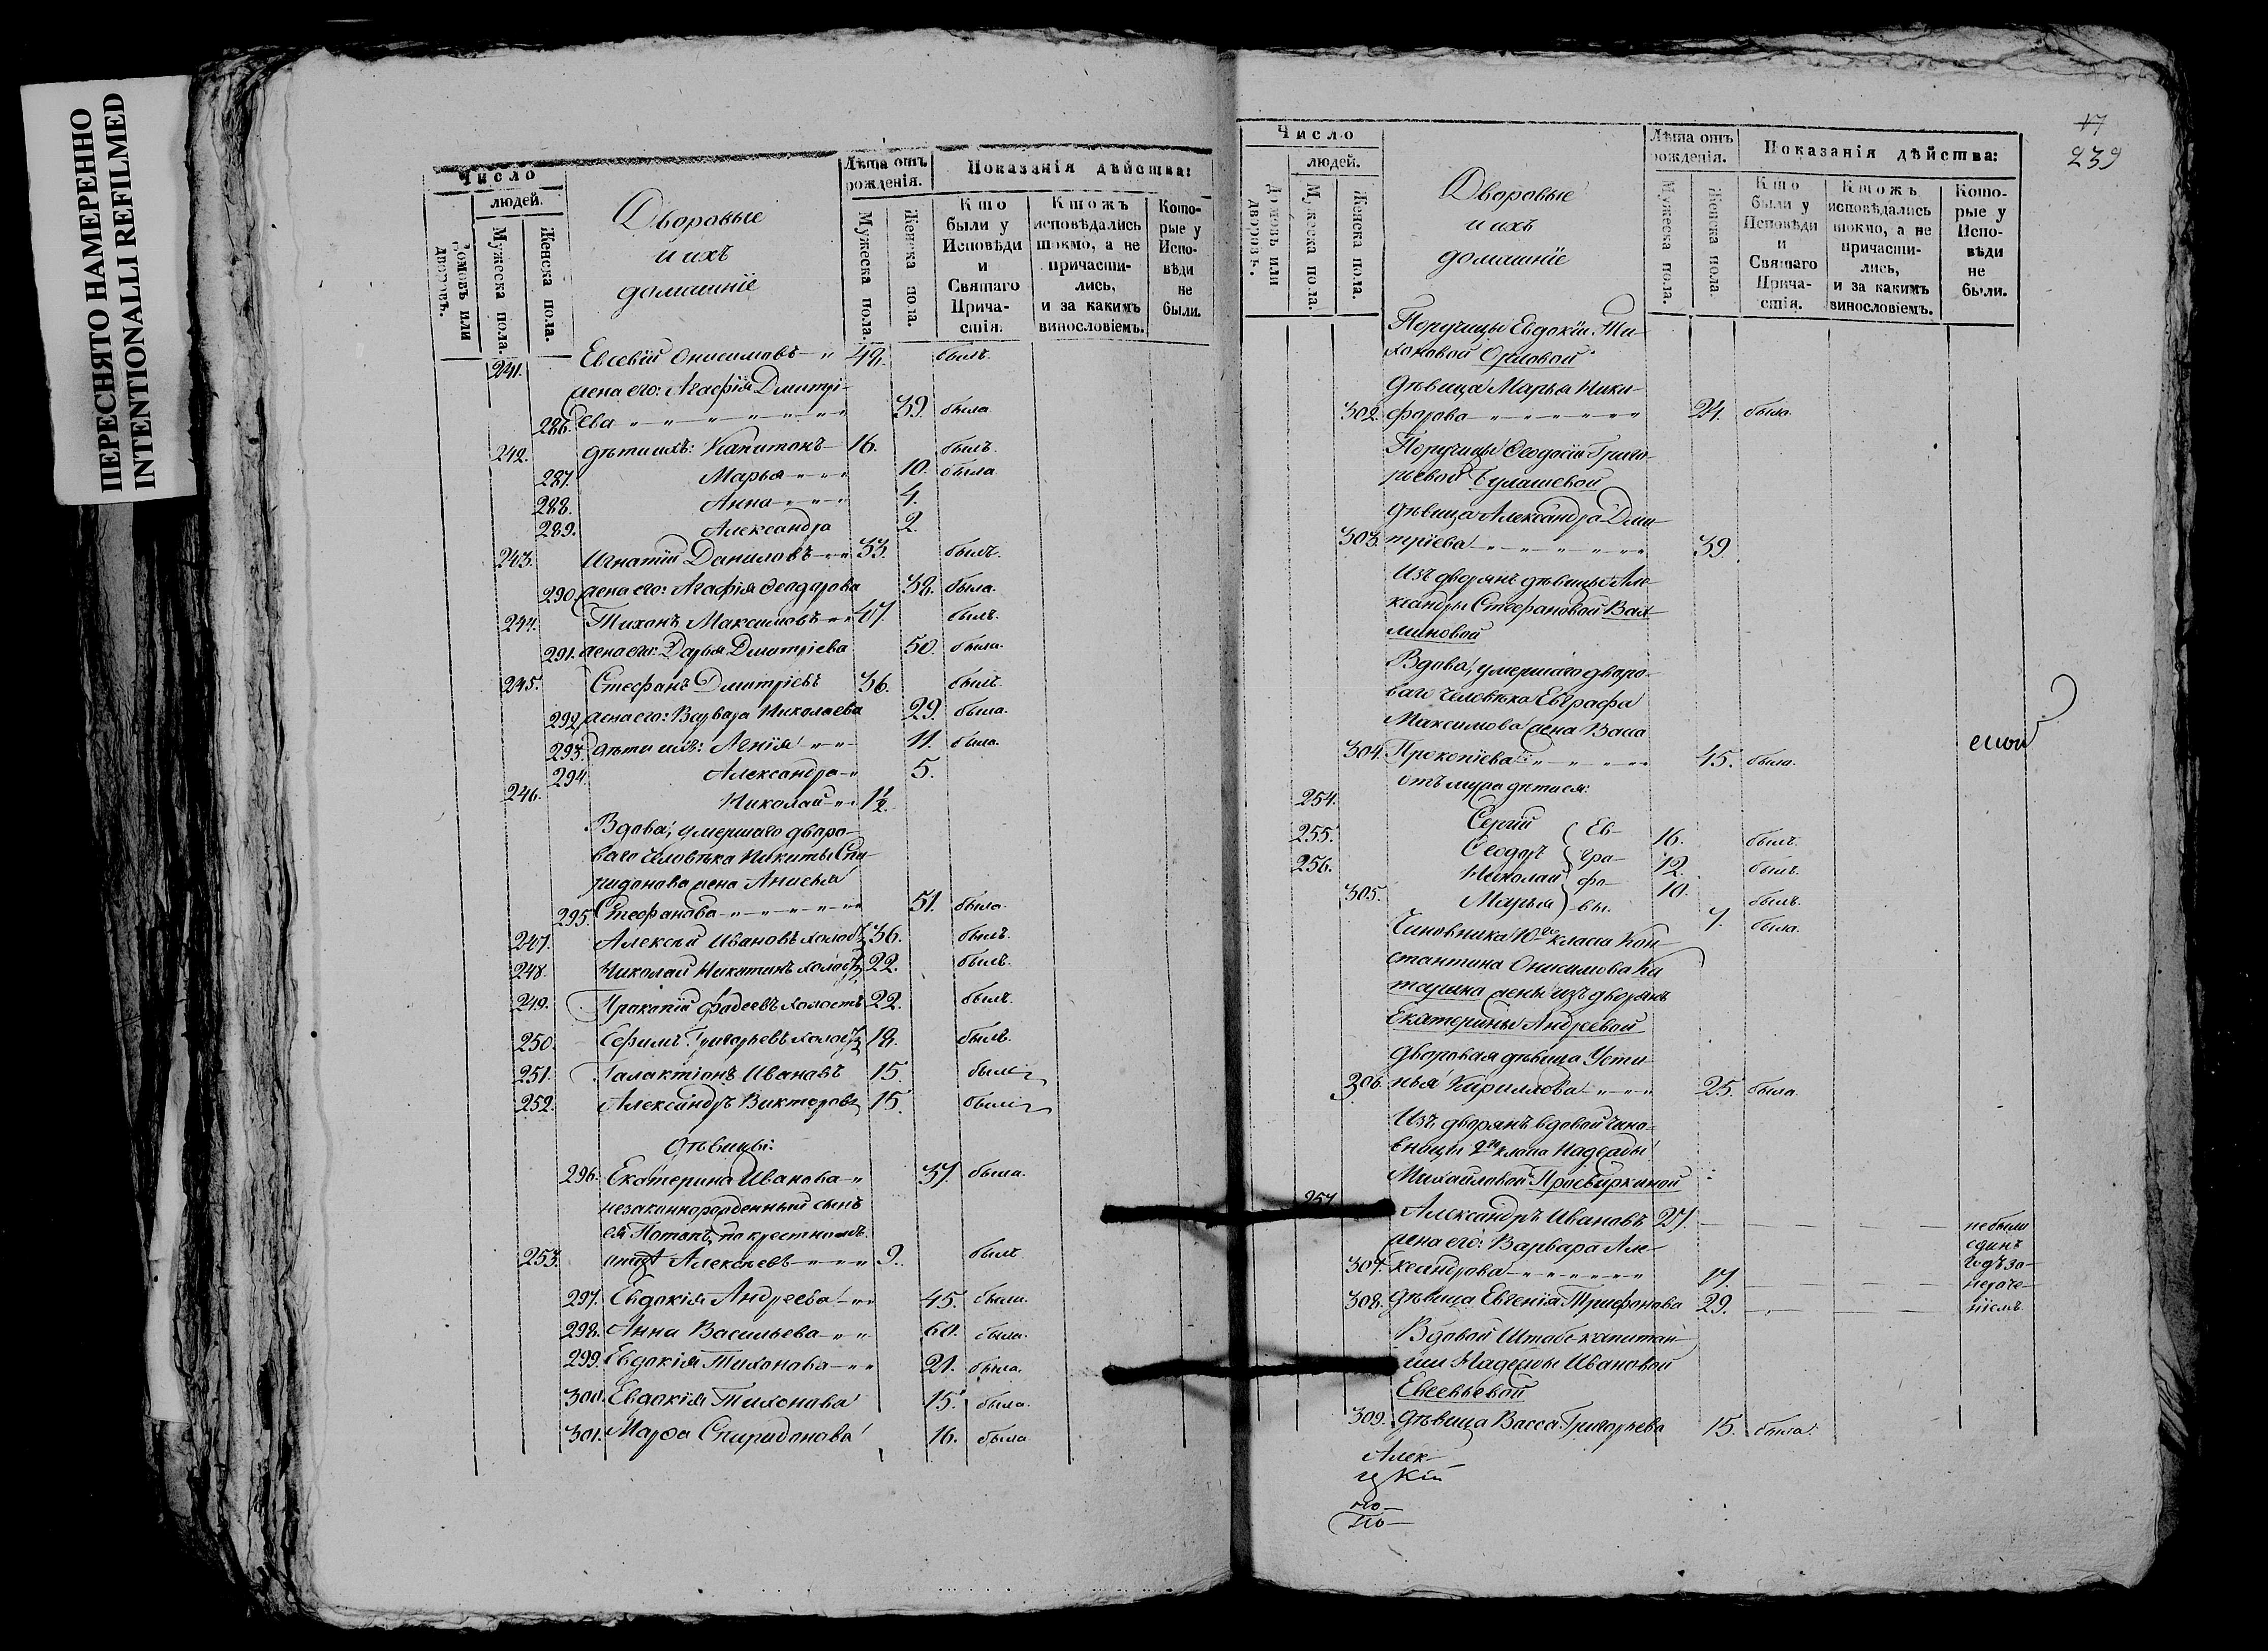 ПЕРЕСНЯТО НАМЕРЕННО
INTENTIONALLI REFILMED
Число
людей.
Домовъ или дворовъ.
Мужеска пола.
Женска пола.
Дворовые
и ихъ
домашніе
Лѣта отъ рожденія.
Мужеска пола.
Женска пола.
Показанія дѣйства:
Кто были у Исповѣди и Святаго Причастія.
Ктожъ исповѣдались токмо, а не причастились, и за какимъ винословіемъ.
Которые у Исповѣди не были.
241. Евсевій Онисимовъ 49. былъ.
жена его: Агафія Дмитрі-
286. ева 39. была.
242. дѣти ихъ: Капитонъ 16. былъ.
287. Марья 10. была
288. Анна 4.
289. Александра 2.
243. Игнатій Даниловъ 33. былъ.
290. жена его: Агафія Феодорова 38. была.
244. Тихонъ Максимовъ 47. былъ.
291. жена его: Дарья Дмитріева 50. была.
245. Стефанъ Дмитріевъ 36. былъ.
292. жена его: Варвара Николаева 29. была.
293. дѣти ихъ: Агнія 11. была.
294. Александра 5.
246. Николай 1½.
Вдова, умершаго дворо-
ваго человѣка Никиты Спи-
ридонова жена Анисья
295. Стефанова 51. была.
247. Алексѣй Ивановъ холостъ 36. былъ.
248. Николай Никитинъ холостъ 22. былъ.
249. Прокопій Фадеевъ холостъ 22. былъ.
250. Ефимъ Григорьевъ холостъ 18. былъ.
251. Галактіонъ Ивановъ 15. былъ
252. Александръ Викторовъ 15. былъ
Дѣвицы:
296. Екатерина Иванова 37. была.
незаконнорожденный сынъ
ея Потапъ, по крестномъ
253. отцѣ Алексѣевъ 9. былъ
297. Евдокія Андреева 45. была.
298. Анна Васильева 60. была.
299. Евдокія Тихонова 21. была.
300. Евдокія Тихонова 15. была.
301. Марѳа Спиридонова 16. была
17
239
Число
людей.
Домовъ или дворовъ.
Мужеска пола.
Женска пола.
Дворовые
и ихъ
домашніе
Лѣта отъ рожденія.
Мужеска пола.
Женска пола.
Показанія дѣйства:
Кто были у Исповѣди и Святаго Причастія.
Ктожъ исповѣдались токмо, а не причастились, и за какимъ винословіемъ.
Которые у Исповѣди не были.
Поручицы Евдокіи Ти-
хоновой Орловой
дѣвица Марья Ники-
302. форова 24. была.
Поручицы Феодосіи Григо-
рьевой
дѣвица Александра Дми-
303. тріева 39.
Изъ дворянъ дѣвицы Але-
ксандры Стефановой
Вдова, умершаго дворо-
ваго человѣка Евграфа
Максимова жена Васса
304. Прокопіева 45. была.
дѣти ея:
254. Сергій 16. былъ.
255. Феодоръ 12. былъ.
256. Николай 10. былъ.
305. Марья 7. была.
Ев-
гра-
фо-
вы.
Чиновника 10го класса Кон-
стантина Онисимова
жены изъ дворянъ
Екатерины Андреевой
дворовая дѣвица Усти-
306. нья Кириллова 25. была.
Изъ дворянъ вдовой чино-
вницы класса Надежды
Михайловой Просвиркиной
257. Александръ Ивановъ 27.
жена его: Варвара Але-
307. ксандрова 17.
308. дѣвица Евгенія Трифонова 29.
не были
одинъ
годъ за
Вдовой Штабс-капитан-
ши Надежды Ивановой
Евсевьевой
309. дѣвица Васса Григорьева 15. была.
Алек-